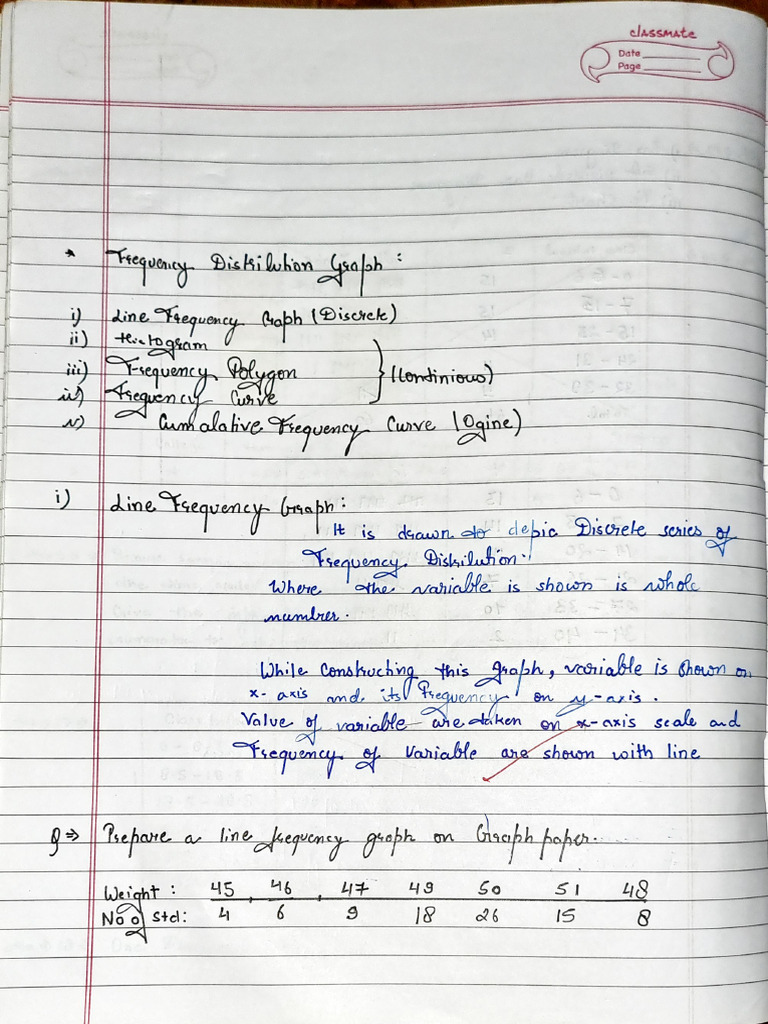 classmate
Date
Page
* Frequency Distribution Graph :
i) Line Frequency Graph (Discrete)
ii) Histogram
iii) Frequency Polygon } (Continious)
iv) Frequency Curve
v) Cumalative Frequency Curve (Ogine)
i) Line Frequency Graph :
It is drawn to depic Discrete series of
Frequency Distribution.
Where the variable is shown is whole
number.
While Constructing this graph, variable is shown on
x-axis and its Frequency on y-axis.
Value of variable are taken on x-axis scale and
Frequency of Variable are shown with line
Q ⇒ Prepare a line frequency graph on Graph paper.
Weight : 45 , 46 , 47 49 50 51 48
No of Std: 4 6 9 18 26 15 8